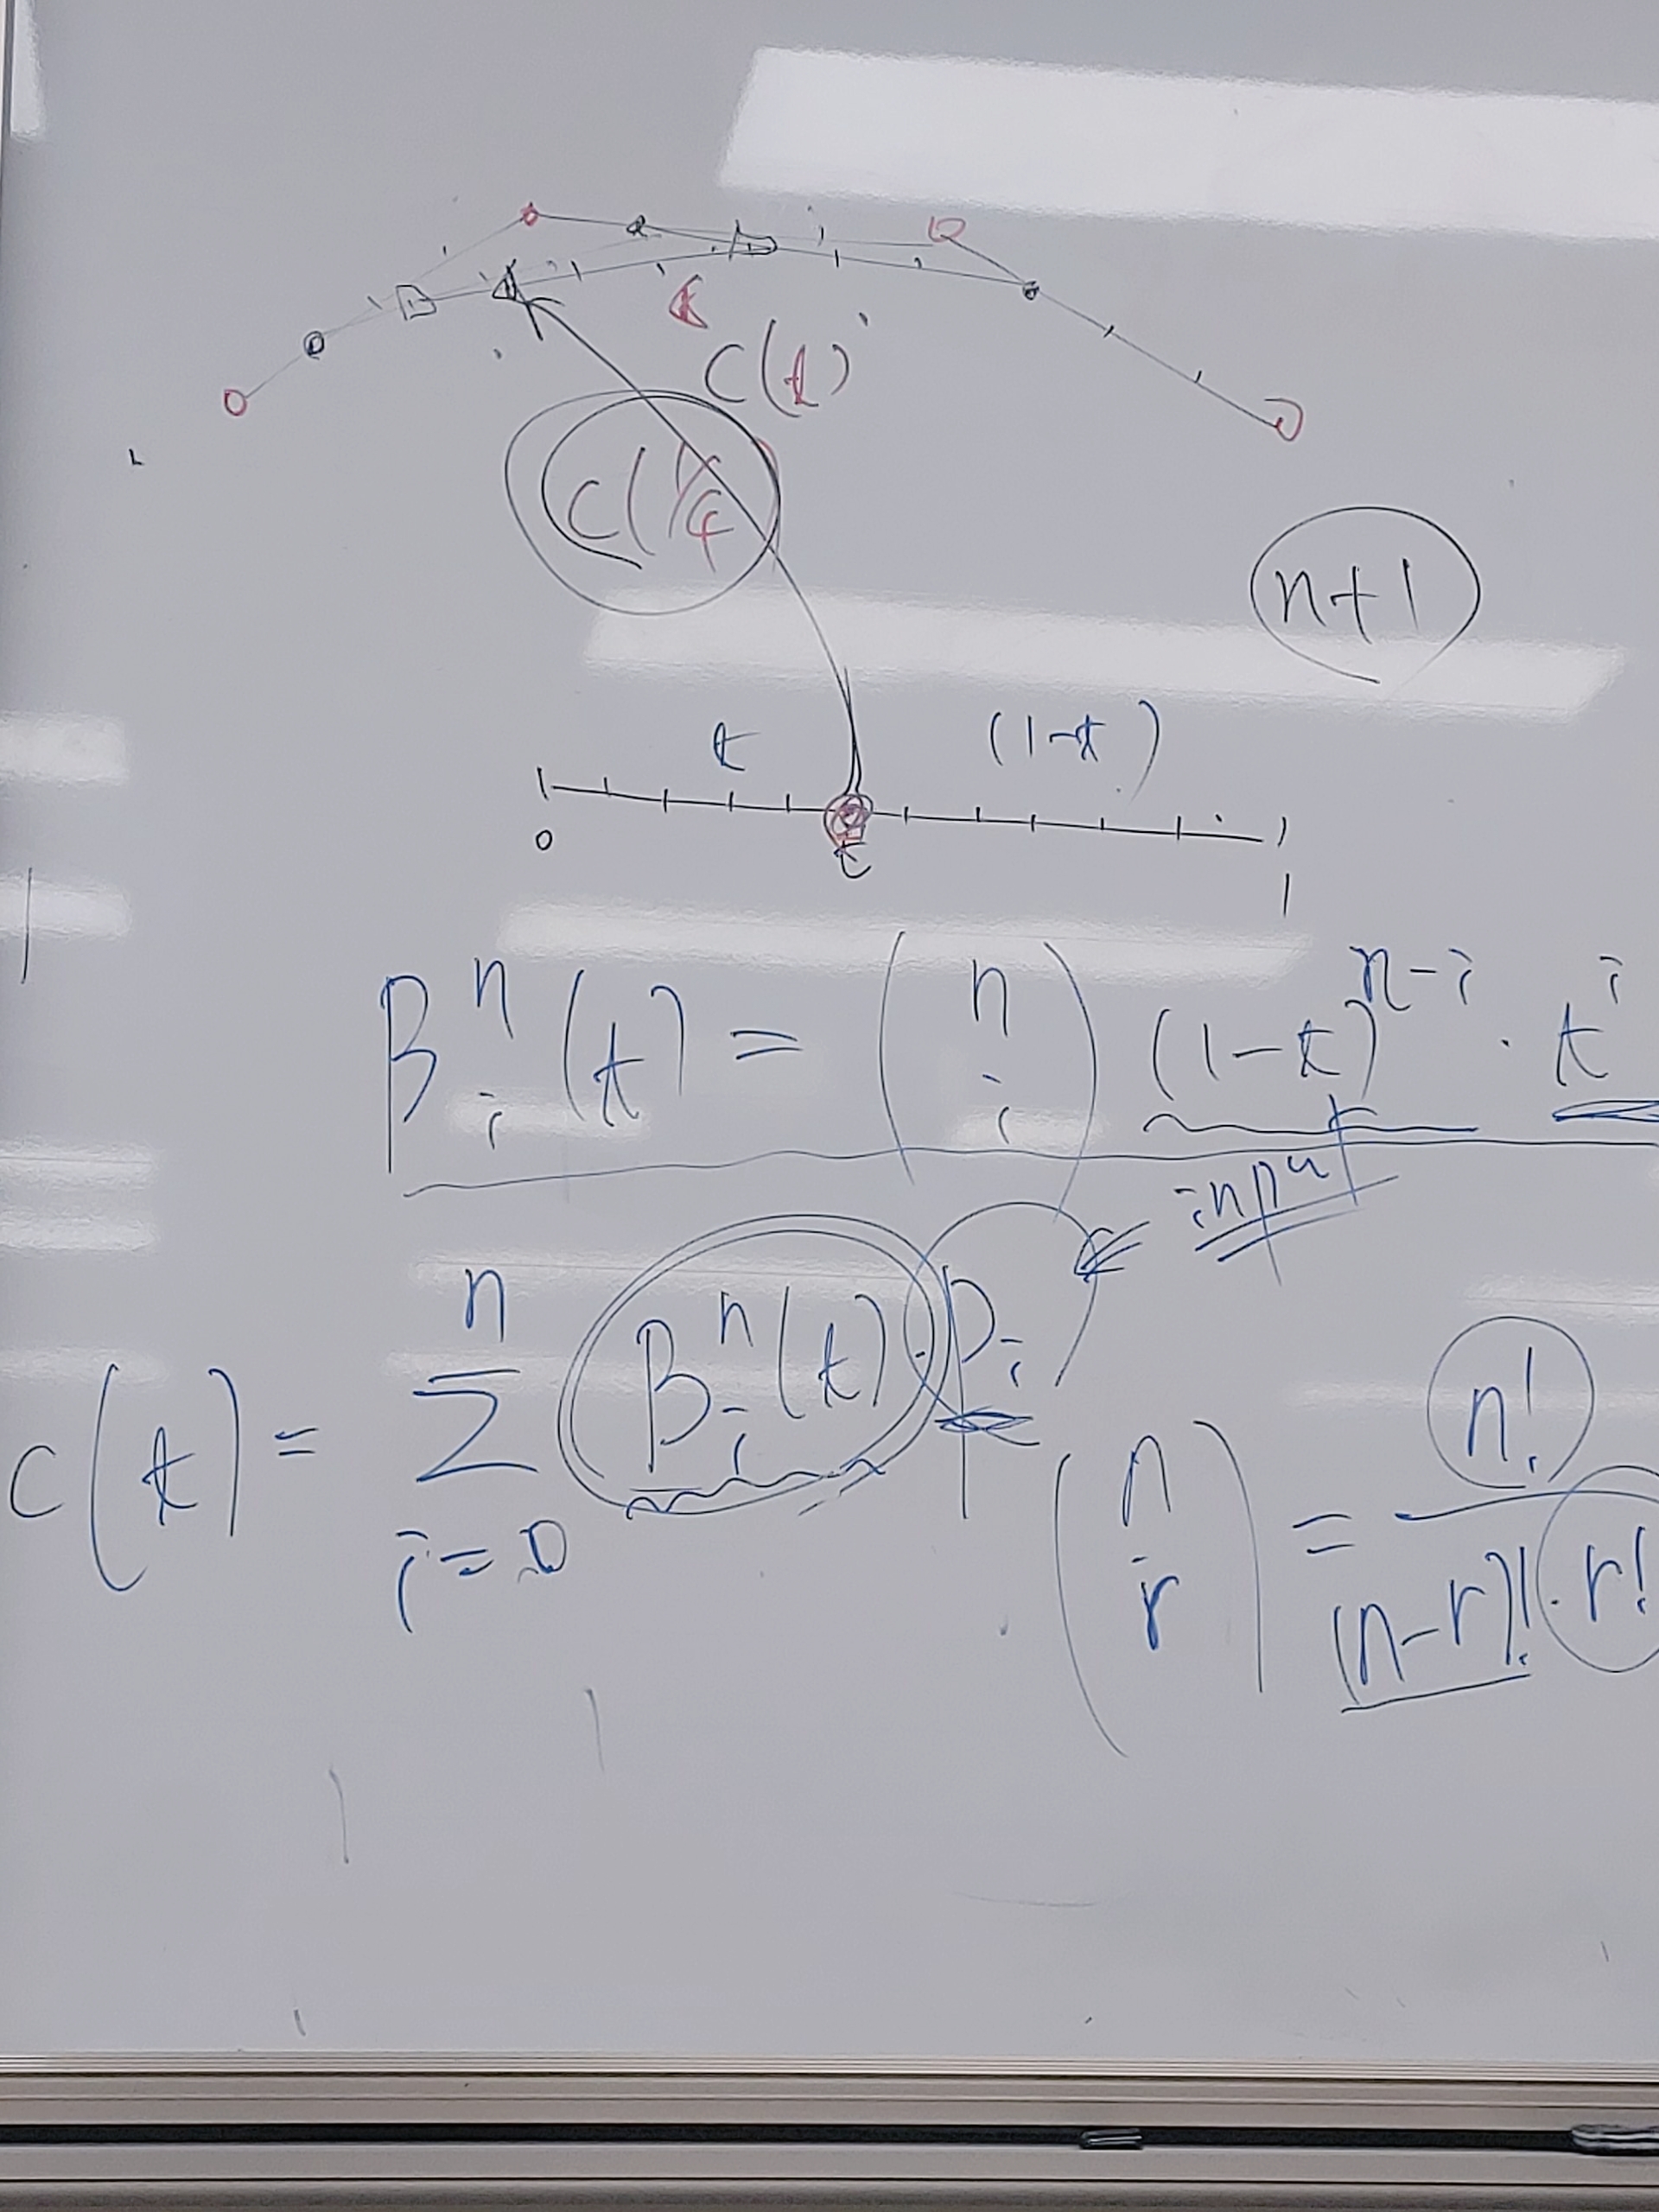 C(t)
C(1/4
n+1
t (1-t)
0 t 1
B_i^n(t) = (n i) (1-t)^{n-i} · t^i
input
C(t) = Σ_{i=0}^{n} B_i^n(t) · P_i
(n r) = n! / (n-r)! · r!